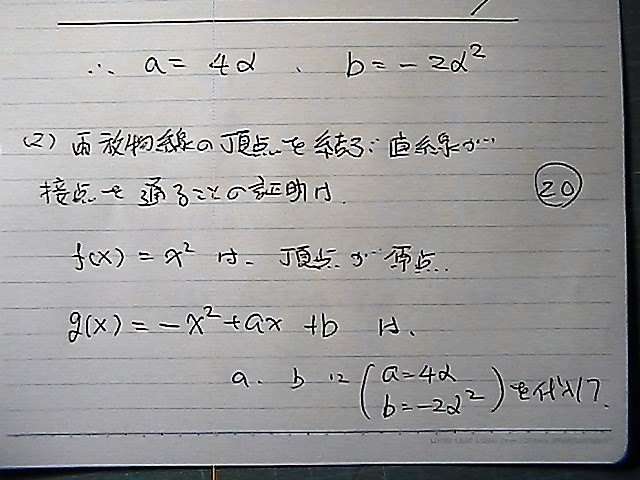 ∴ a = 4α 、 b = -2α²
(2) 両放物線の頂点を結ぶ直線が
接点を通ることの証明は、
20
f(x) = x² は、頂点が原点、
g(x) = -x² + ax + b は、
a、b に (a=4α
b=-2α²) を代入して、